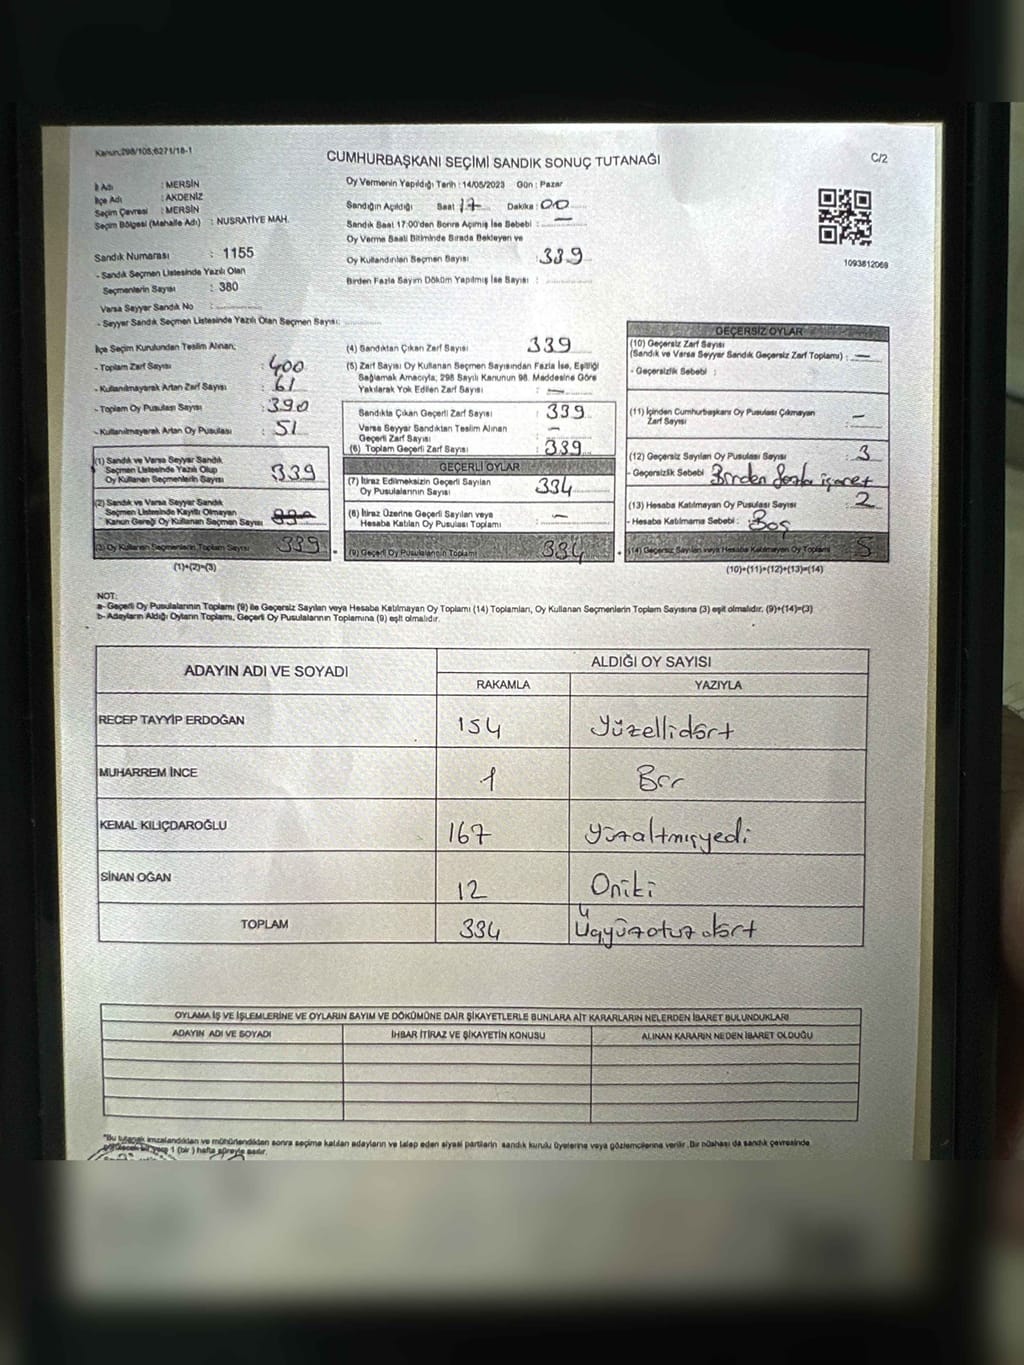 Kanun:298/105;6271/18-1
CUMHURBAŞKANI SEÇİMİ SANDIK SONUÇ TUTANAĞI
C/2
İl Adı : MERSİN
İlçe Adı : AKDENİZ
Seçim Çevresi : MERSİN
Seçim Bölgesi (Mahalle Adı) : NUSRATİYE MAH.
Sandık Numarası : 1155
- Sandık Seçmen Listesinde Yazılı Olan
Seçmenlerin Sayısı : 380
Varsa Seyyar Sandık No :
- Seyyar Sandık Seçmen Listesinde Yazılı Olan Seçmen Sayısı:
Oy Vermenin Yapıldığı Tarih : 14/05/2023 Gün : Pazar
Sandığın Açıldığı Saat 17 Dakika : 00
Sandık Saat 17:00'den Sonra Açımış İse Sebebi : —
Oy Verme Saati Bitiminde Sırada Bekleyen ve
Oy Kullandırılan Seçmen Sayısı : 339
Birden Fazla Sayım Döküm Yapılmış İse Sayısı :
1093812069
İlçe Seçim Kurulundan Teslim Alınan;
- Toplam Zarf Sayısı : 400
- Kullanılmayarak Artan Zarf Sayısı : 61
- Toplam Oy Pusulası Sayısı : 390
- Kullanılmayarak Artan Oy Pusulası : 51
(1) Sandık ve Varsa Seyyar Sandık
Seçmen Listesinde Yazılı Olup
Oy Kullanan Seçmenlerin Sayısı : 339
(2) Sandık ve Varsa Seyyar Sandık
Seçmen Listesinde Kayıtlı Olmayan
Kanun Gereği Oy Kullanan Seçmen Sayısı :
(3) Oy Kullanan Seçmenlerin Toplam Sayısı : 339
(1)+(2)=(3)
(4) Sandıktan Çıkan Zarf Sayısı : 339
(5) Zarf Sayısı Oy Kullanan Seçmen Sayısından Fazla İse, Eşitliği
Sağlamak Amacıyla, 298 Sayılı Kanunun 98. Maddesine Göre
Yakılarak Yok Edilen Zarf Sayısı : —
Sandıkta Çıkan Geçerli Zarf Sayısı : 339
Varsa Seyyar Sandıktan Teslim Alınan
Geçerli Zarf Sayısı : —
(6) Toplam Geçerli Zarf Sayısı : 339
GEÇERLİ OYLAR
(7) İtiraz Edilmeksizin Geçerli Sayılan
Oy Pusulalarının Sayısı : 334
(8) İtiraz Üzerine Geçerli Sayılan veya
Hesaba Katılan Oy Pusulası Toplamı : —
(9) Geçerli Oy Pusulalarının Toplamı : 334
GEÇERSİZ OYLAR
(10) Geçersiz Zarf Sayısı
(Sandık ve Varsa Seyyar Sandık Geçersiz Zarf Toplamı) : —
- Geçersizlik Sebebi :
(11) İçinden Cumhurbaşkanı Oy Pusulası Çıkmayan
Zarf Sayısı : —
(12) Geçersiz Sayılan Oy Pusulası Sayısı : 3
- Geçersizlik Sebebi : Birden fazla işaret
(13) Hesaba Katılmayan Oy Pusulası Sayısı : 2
- Hesaba Katılmama Sebebi : Boş
(14) Geçersiz Sayılan veya Hesaba Katılmayan Oy Toplamı : 5
(10)+(11)+(12)+(13)=(14)
NOT:
a- Geçerli Oy Pusulalarının Toplamı (9) ile Geçersiz Sayılan veya Hesaba Katılmayan Oy Toplamı (14) Toplamları, Oy Kullanan Seçmenlerin Toplam Sayısına (3) eşit olmalıdır. (9)+(14)=(3)
b- Adayların Aldığı Oyların Toplamı, Geçerli Oy Pusulalarının Toplamına (9) eşit olmalıdır.
ADAYIN ADI VE SOYADI ALDIĞI OY SAYISI
RAKAMLA YAZIYLA
RECEP TAYYİP ERDOĞAN 154 Yüzellidört
MUHARREM İNCE 1 Bir
KEMAL KILIÇDAROĞLU 167 Yüzaltmışyedi
SİNAN OĞAN 12 Oniki
TOPLAM 334 Üçyüzotuzdört
OYLAMA İŞ VE İŞLEMLERİNE VE OYLARIN SAYIM VE DÖKÜMÜNE DAİR ŞİKAYETLERLE BUNLARA AİT KARARLARIN NELERDEN İBARET BULUNDUKLARI
ADAYIN ADI VE SOYADI İHBAR İTİRAZ VE ŞİKAYETİN KONUSU ALINAN KARARIN NEDEN İBARET OLDUĞU
"Bu tutanak imzalandıktan ve mühürlendikten sonra seçime katılan adayların ve talep eden siyasi partilerin sandık kurulu üyelerine veya gözlemcilerine verilir. Bir nüshası da sandık çevresinde
1 (bir) hafta süreyle asılır.